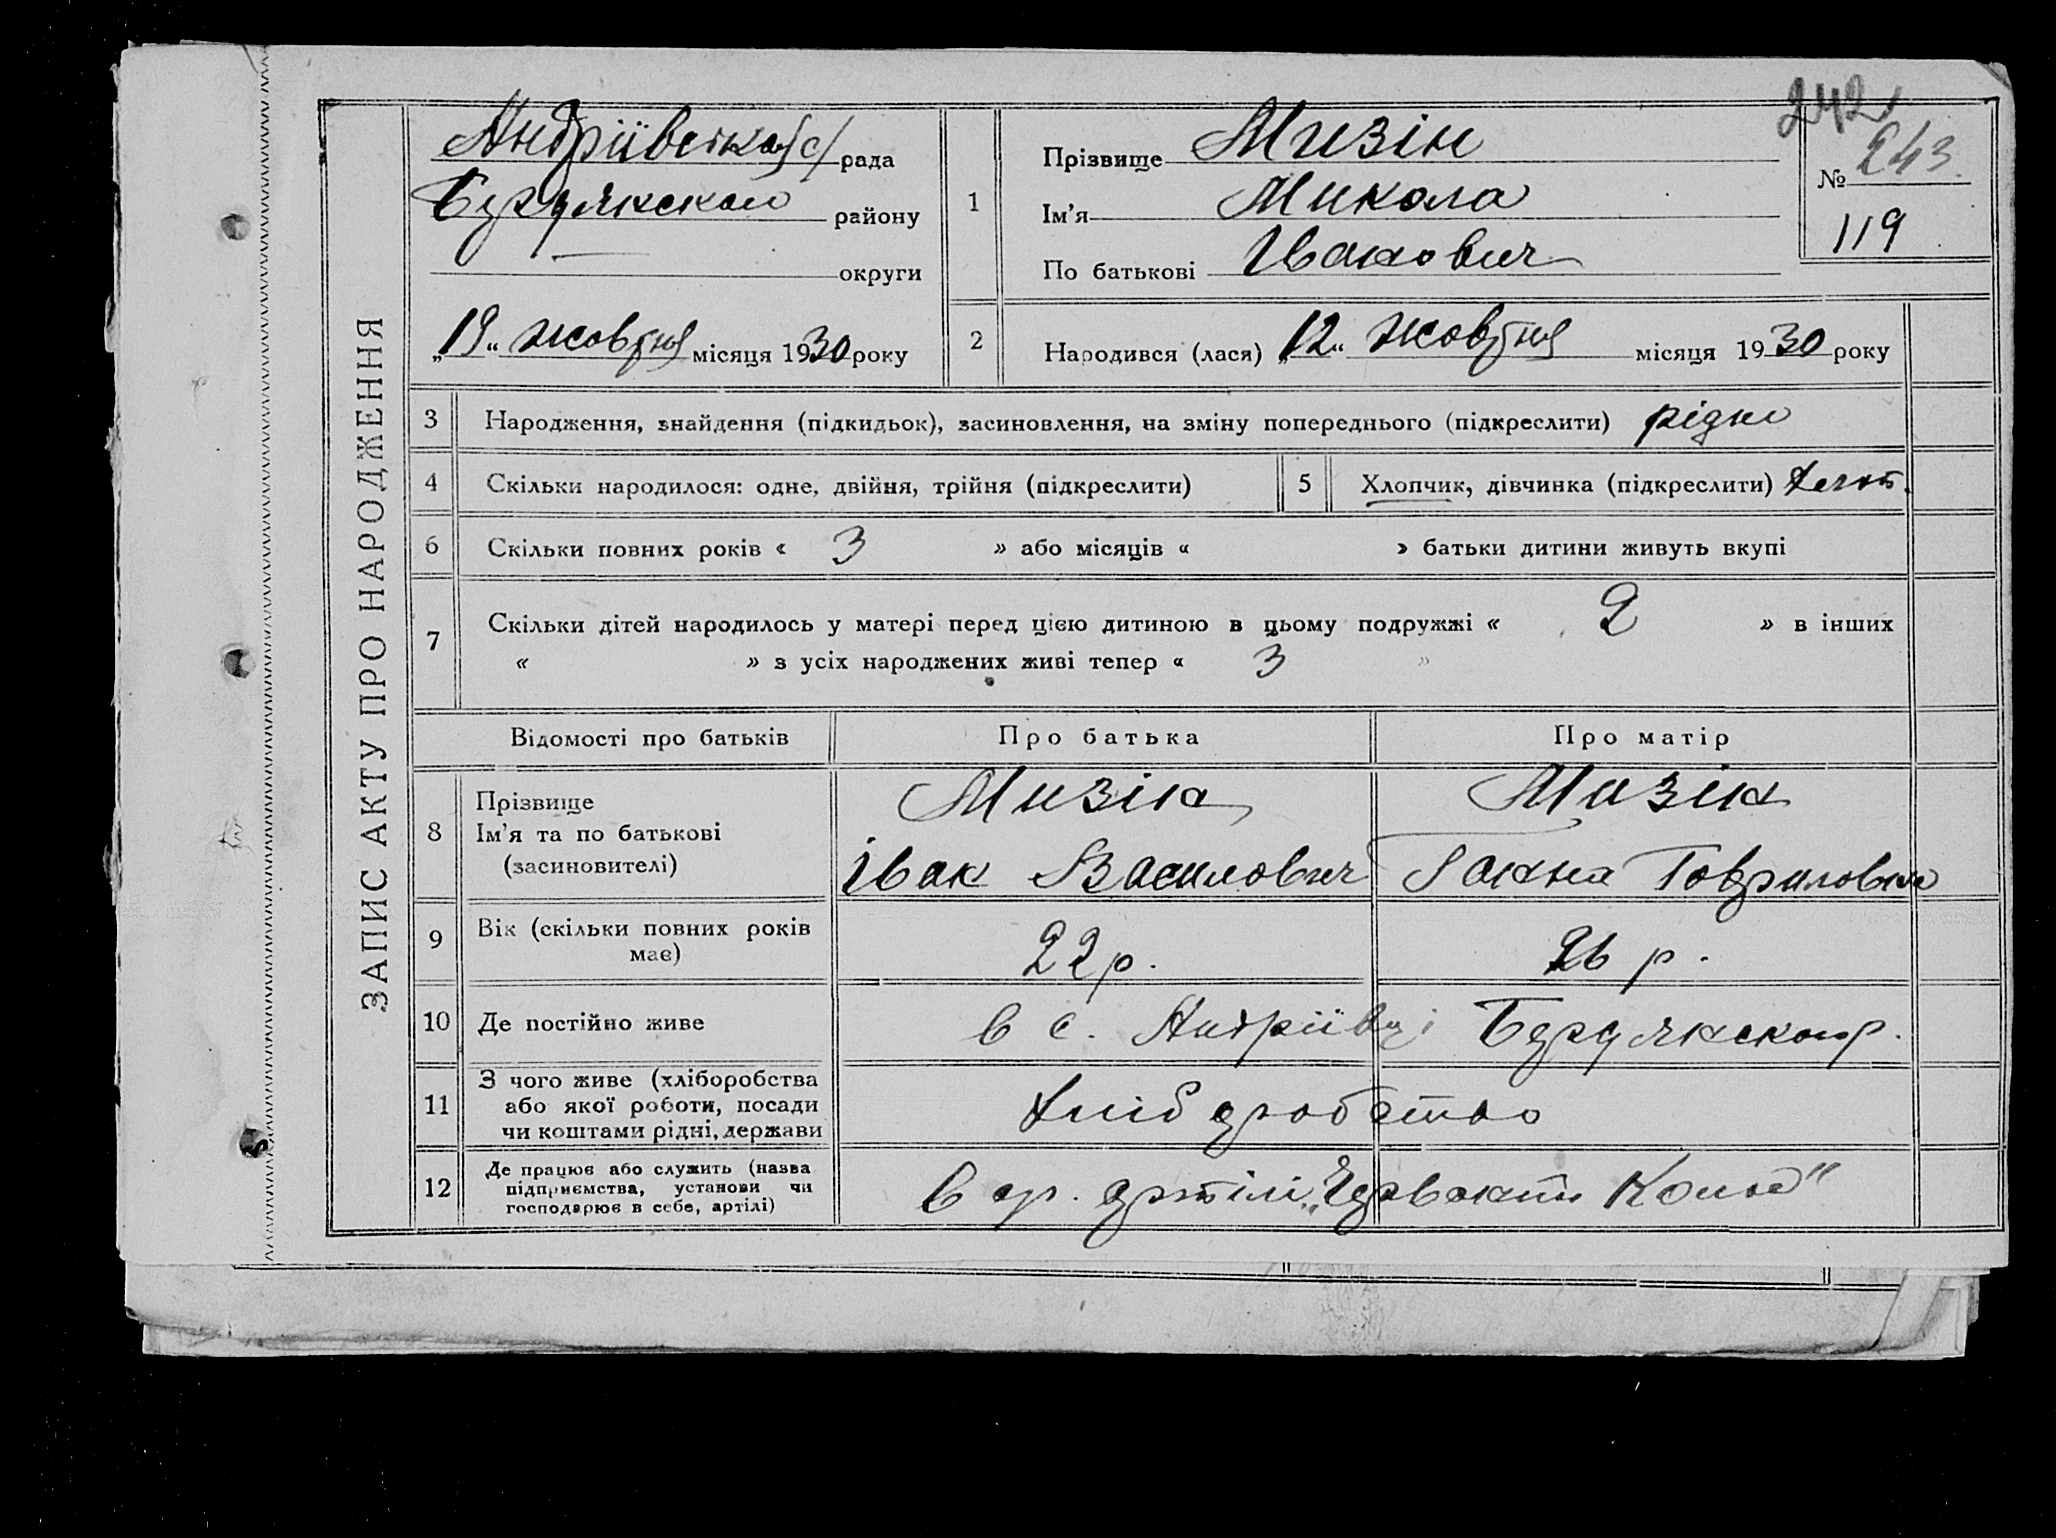 242
№ 243
119
ЗАПИС АКТУ ПРО НАРОДЖЕННЯ
Андріївська /с/ рада
району
округи
„19“ жовтня місяця 1930 року
1 Прізвище Мизін
Ім'я Микола
По батькові Іванович
2 Народився (лася) „12“ жовтня місяця 1930 року
3 Народження, знайдення (підкидьок), засиновлення, на зміну попереднього (підкреслити) рідне
4 Скільки народилося: одне, двійня, трійня (підкреслити)
5 Хлопчик, дівчинка (підкреслити)
6 Скільки повних років « 3 » або місяців « » батьки дитини живуть вкупі
7 Скільки дітей народилось у матері перед цією дитиною в цьому подружжі « 2 » в інших
« » з усіх народжених живі тепер « 3 »
Відомості про батьків Про батька Про матір
8 Прізвище Мизін Мизін
Ім'я та по батькові Іван Василович Ганна Гавриловна
(засиновителі)
9 Вік (скільки повних років має) 22 р. 26 р.
10 Де постійно живе в с. Андріївці
11 З чого живе (хліборобства
або якої роботи, посади
чи коштами рідні, держави
хліборобство
12 Де працює або служить (назва
підприємства, установи чи
господарює в себе, артілі)
в артілі